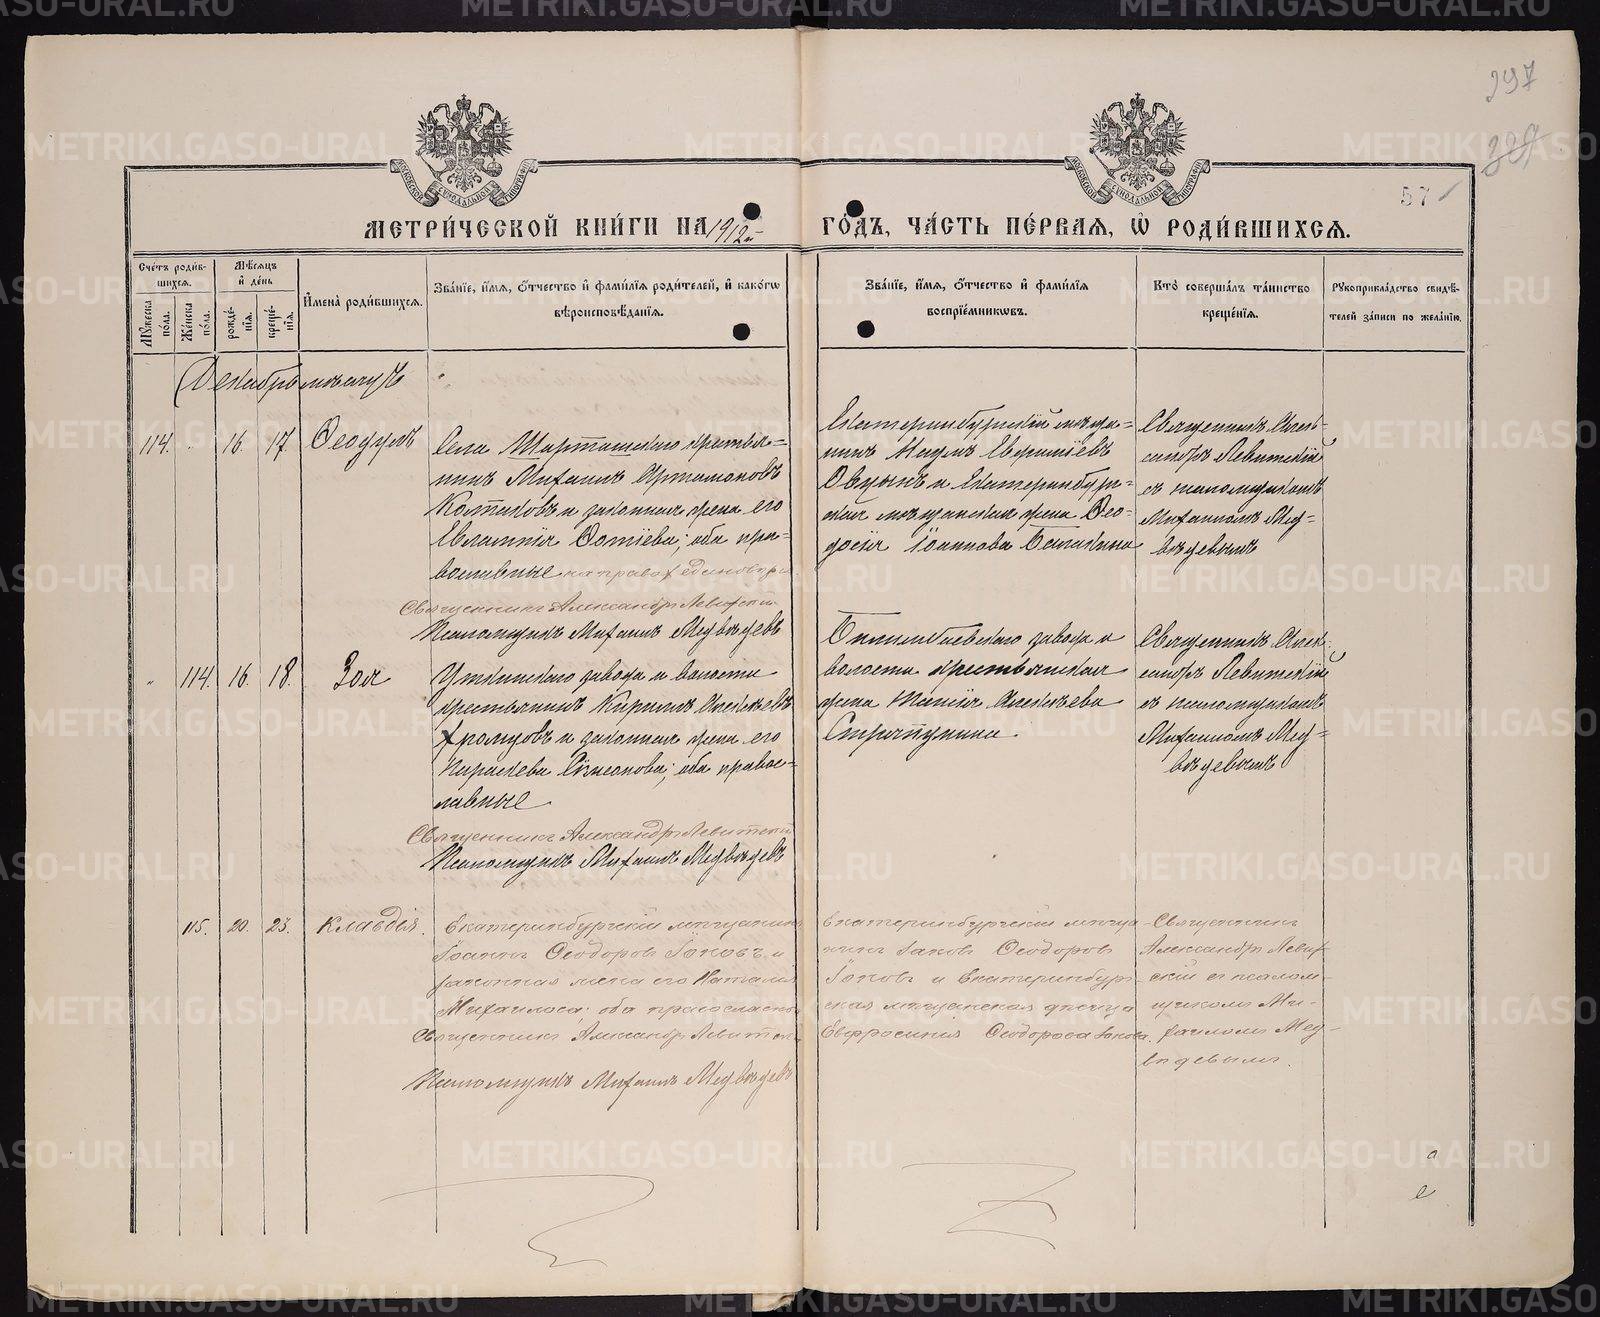 297
327
57
МЕТРИ́ЧЕСКОЙ КНИ́ГИ НА 1912 ГО́ДЪ, ЧА́СТЬ ПЕ́РВАЯ, Ѽ РОДИ́ВШИХСЯ.
Сче́тъ роди́в-
шихся.
Мꙋ́жеска по́ла.
Же́нска по́ла.
Мѣ́сяцъ
и҆ де́нь
рожде́-
нїя.
креще́-
нїя.
И҆мена̀ роди́вшихся.
Зва́нїе, и҆́мя, ѻ҆́тчество и҆ фами́лїя роди́телей, и҆ како́гѡ
вѣроисповѣ́данїя.
Зва́нїе, и҆́мя, ѻ҆́тчество и҆ фами́лїя
воспрїе́мниковъ.
Кто̀ соверша́лъ та́инство
креще́нїя.
Рꙋкоприкла́дство свидѣ́-
телей за́писи по жела́нїю.
Декабрь мѣсяцъ
114. " 16. 17. Ѳеодулъ
Села Шарташскаго крестья=
нинъ Михаилъ Артамоновъ
Котиковъ и законная жена его
Евлампія Фотіева; оба пра=
вославные на правах единовѣрія
Священникъ Александръ Левитскій
Псаломщикъ Михаилъ Медвѣдевъ
Екатеринбургскій мѣща=
нинъ Наумъ
и Екатеринбург=
ская мѣщанская жена Ѳео=
досія Іоаннова
Священникъ Алек-
сандръ Левитскій
съ псаломщикомъ
Михаиломъ Мед=
вѣдевымъ
" 114. 16. 18. Зоя
Уткинскаго завода и волости
крестьянинъ Кириллъ Алексѣевъ
Хромцовъ и законная жена его
Параскева Симеонова; оба правос=
лавные
Священникъ Александръ Левитскій
Псаломщикъ Михаилъ Медвѣдевъ
Билимбаевскаго завода и
волости крестьянская
жена Таисія Алексѣева
Стряпунина
Священникъ Алек-
сандръ Левитскій
съ псаломщикомъ
Михаиломъ Мед=
вѣдевымъ
115. 20. 23. Клавдія.
Екатеринбургскій мѣщанинъ
Іоаннъ Ѳеодоровъ Іоновъ и
законная жена его Наталія
Михаилова; оба православные
Священникъ Александръ Левитскій
Псаломщикъ Михаилъ Медвѣдевъ
Екатеринбургскій мѣща
нинъ Іаковъ Ѳеодоровъ
Іоновъ и Екатеринбург-
ская мѣщанская дѣвица
Евфросинія Ѳеодорова Іонова.
Священникъ
Александръ Левит-
скій съ псалом-
щикомъ Ми-
хаиломъ Мед-
вѣдевымъ.
METRIKI.GASO-URAL.RU